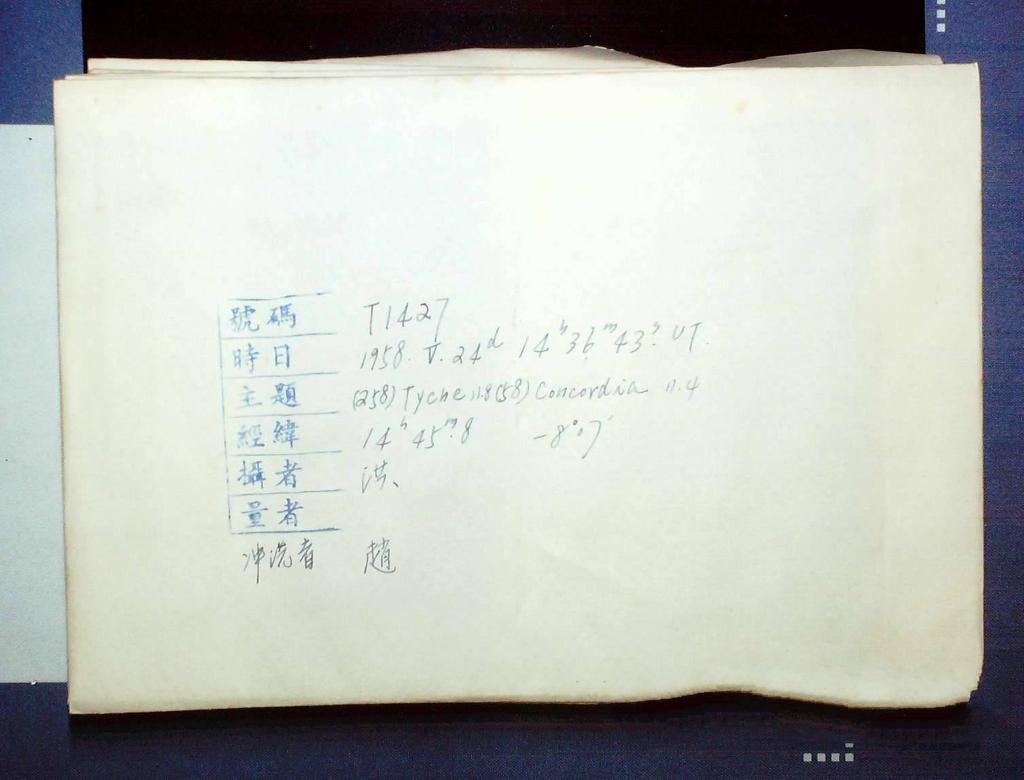 號碼 T1427
時日 1958. V. 24ᵈ 14ʰ36ᵐ43ˢ. UT.
主題 (258) Tyche 11.8 (58) Concordia 11.4
經緯 14ʰ45ᵐ.8 -8°07'
攝者 洪、
量者
冲洗者 趙